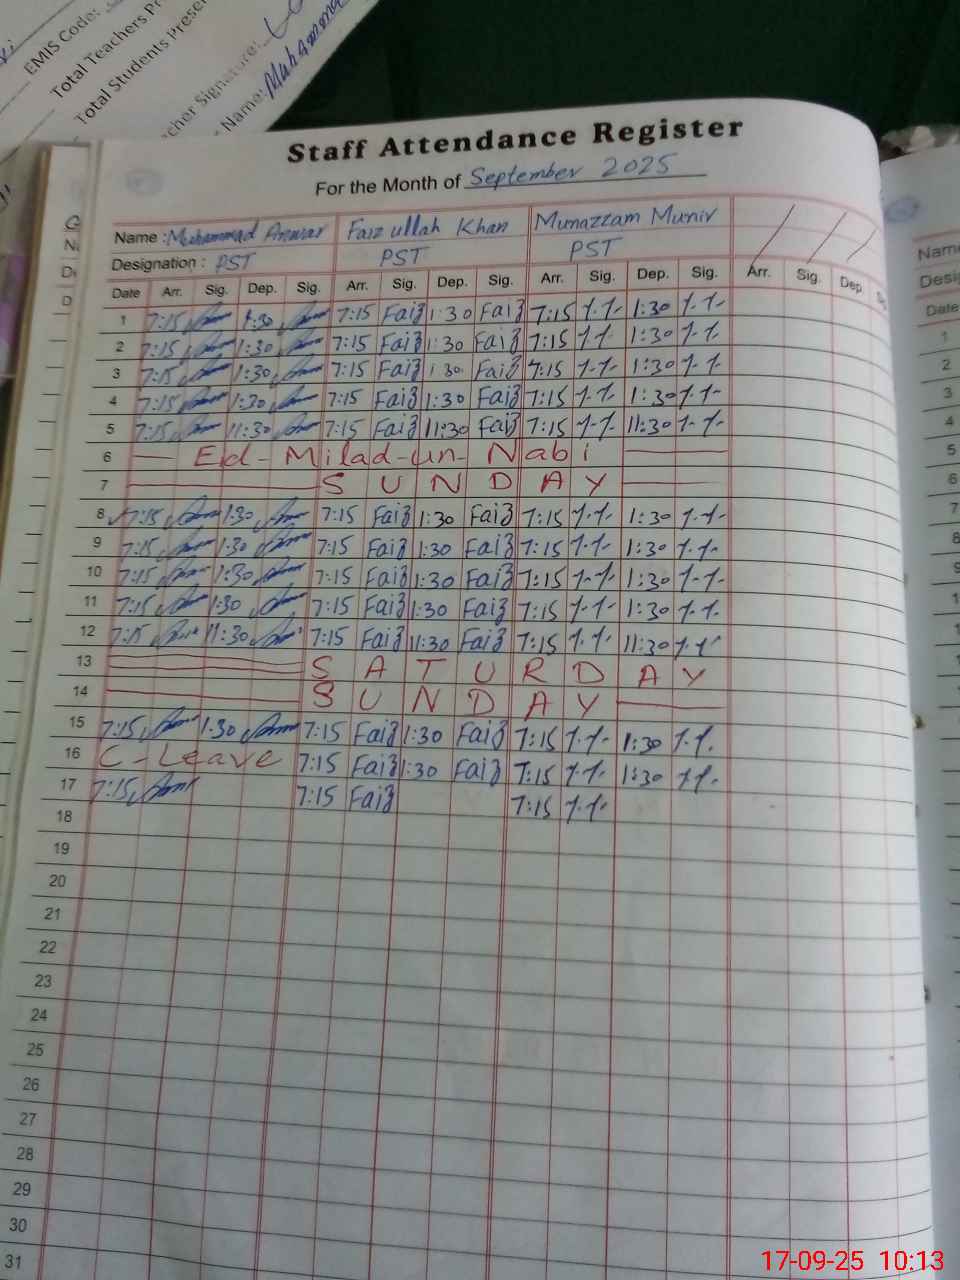 EMIS Code:
Total Teachers Pr
Total Students Presen
cher Signature:
Name: Muhamma
Staff Attendance Register
For the Month of September 2025
Name : Muhammad Anwar Faiz ullah Khan Munazzam Munir
Designation : PST PST PST
Date Arr. Sig. Dep. Sig. Arr. Sig. Dep. Sig. Arr. Sig. Dep. Sig. Arr. Sig. Dep
1 7:15 1:30 7:15 Faiz 1:30 Faiz 7:15 1:30
2 7:15 1:30 7:15 Faiz 1:30 Faiz 7:15 1:30
3 7:15 1:30 7:15 Faiz 1:30 Faiz 7:15 1:30
4 7:15 1:30 7:15 Faiz 1:30 Faiz 7:15 1:30
5 7:15 11:30 7:15 Faiz 11:30 Faiz 7:15 11:30
6 Ed-Milad-un-Nabi
7 SUNDAY
8 7:15 1:30 7:15 Faiz 1:30 Faiz 7:15 1:30
9 7:15 1:30 7:15 Faiz 1:30 Faiz 7:15 1:30
10 7:15 1:30 7:15 Faiz 1:30 Faiz 7:15 1:30
11 7:15 1:30 7:15 Faiz 1:30 Faiz 7:15 1:30
12 7:15 11:30 7:15 Faiz 11:30 Faiz 7:15 11:30
13 SATURDAY
14 SUNDAY
15 7:15 1:30 7:15 Faiz 1:30 Faiz 7:15 1:30
16 C-Leave 7:15 Faiz 1:30 Faiz 7:15 1:30
17 7:15 7:15 Faiz 7:15
18
19
20
21
22
23
24
25
26
27
28
29
30
31
Name
Desig
Date
1
2
3
4
5
6
7
8
9
17-09-25 10:13